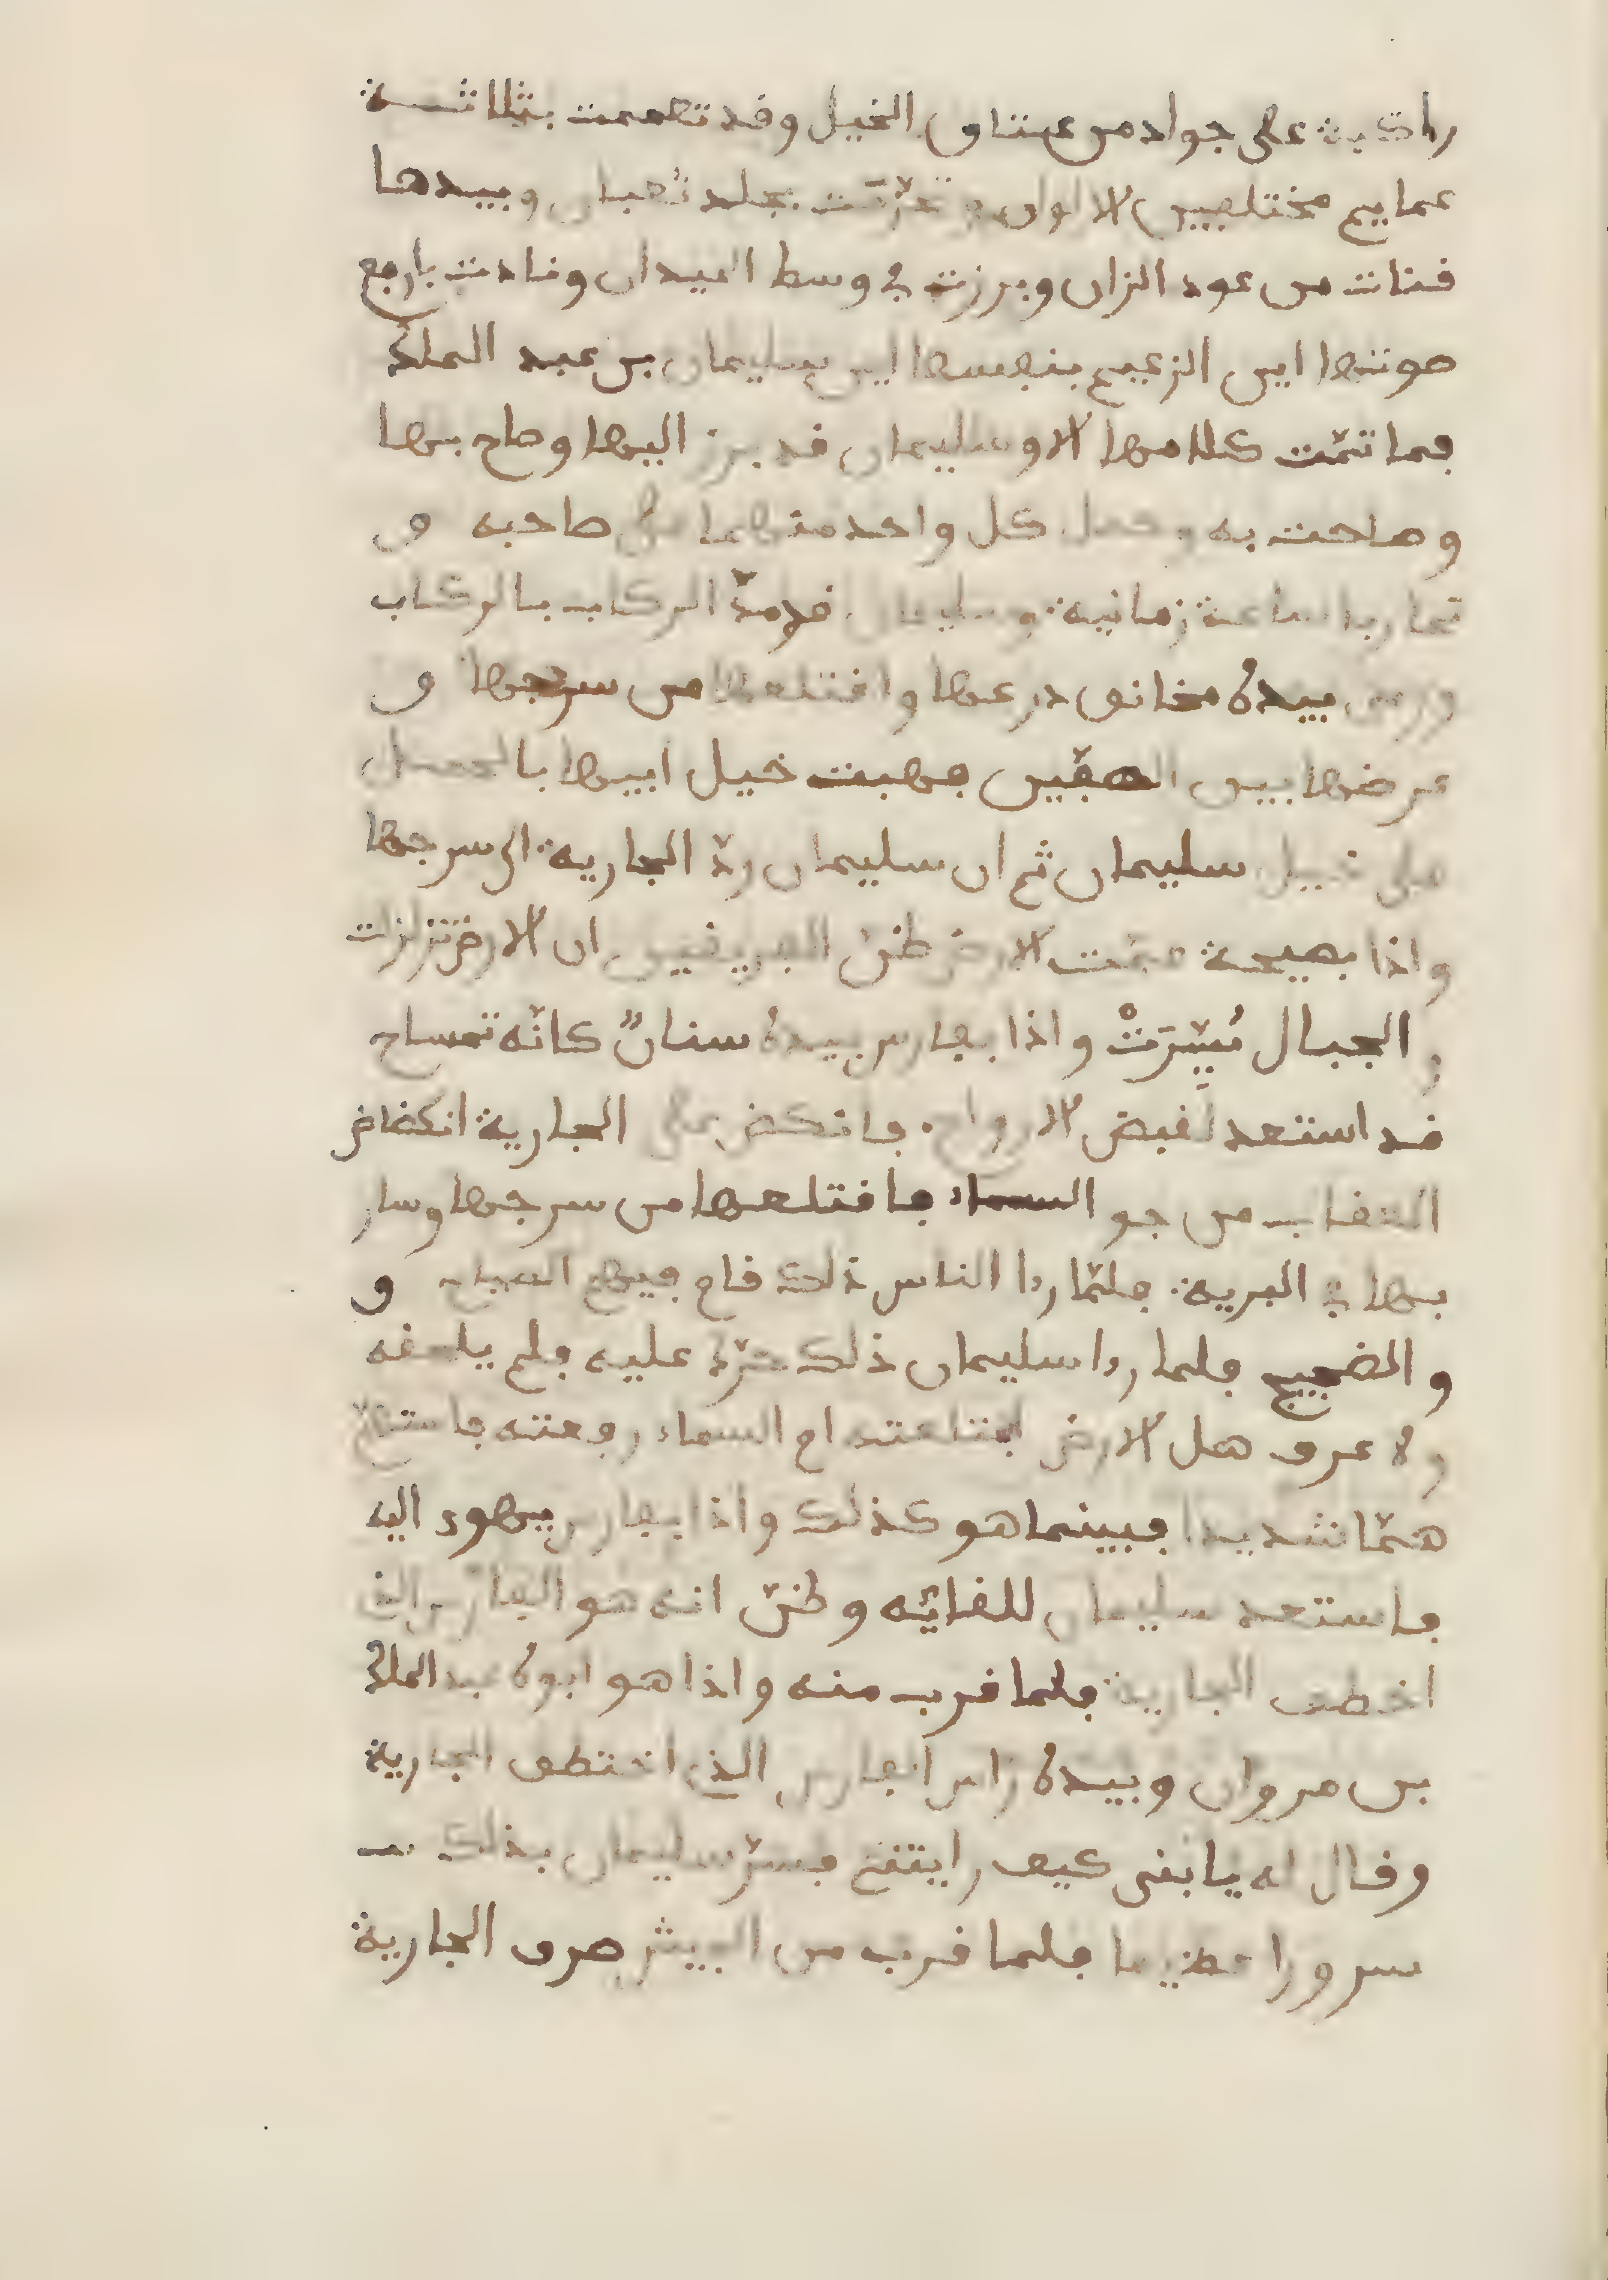 راكبة على جواد من عتاق الخيل وقد تعممت بثلاثة
عمايم مختلفين الالوان و تحزّمت بجلد ثعبان وبيدها
قنات من عود الزان وبرزت في وسط الميدان ونادت بارفع
صوتها اين الزعيم بنفسه اين سليمان بن عبد الملك
فما تمّت كلامها الا وسليمان قد برز اليها وصاح بها
وصاحت به وحمل كل واحد منهما على صاحبه و
تحاربا ساعة زمانية وسليمان قد مدّ الركاب بالركاب
ورمى بيده مخانق درعها واقتلعها من سرجها و
عرضها بين الصفّين فهبت خيل ابيها بالحملة
على خيل سليمان ثم ان سليمان ردّ الجارية الى سرجها
واذا بصيحة عمّت الارض ظنّ الفريقين ان الارض تزلزلت
والجبال سُيِّرَتْ واذا بفارس بيده سنانٌ كانّه تمساح
قد استعد لقبض الارواح فانكض على الجارية انكضاض
العقاب من جو السماء فاقتلعها من سرجها وسار
بها في البرية فلمّا راا الناس ذلك قام فيهم الصياح و
والضجيج فلما راا سليمان ذلك حرّك عليه فلم يلحقه
ولا عرف هل الارض ابتلعته ام السماء رفعته فاستغمّ
همّا شديدا فبينما هو كذلك واذا بفارس يهوى اليه
فاستعد سليمان للقايّه وظنّ انه هو الفارس الذى
اخطف الجارية فلما قرب منه واذا هو ابوه عبد الملك
بن مروان وبيده راس الفارس الذى اختطف الجارية
وقال له يا بنى كيف رايتنى فسرّ سليمان بذلك
سرورا عظيما فلما قرب من الجيش صرف الجارية